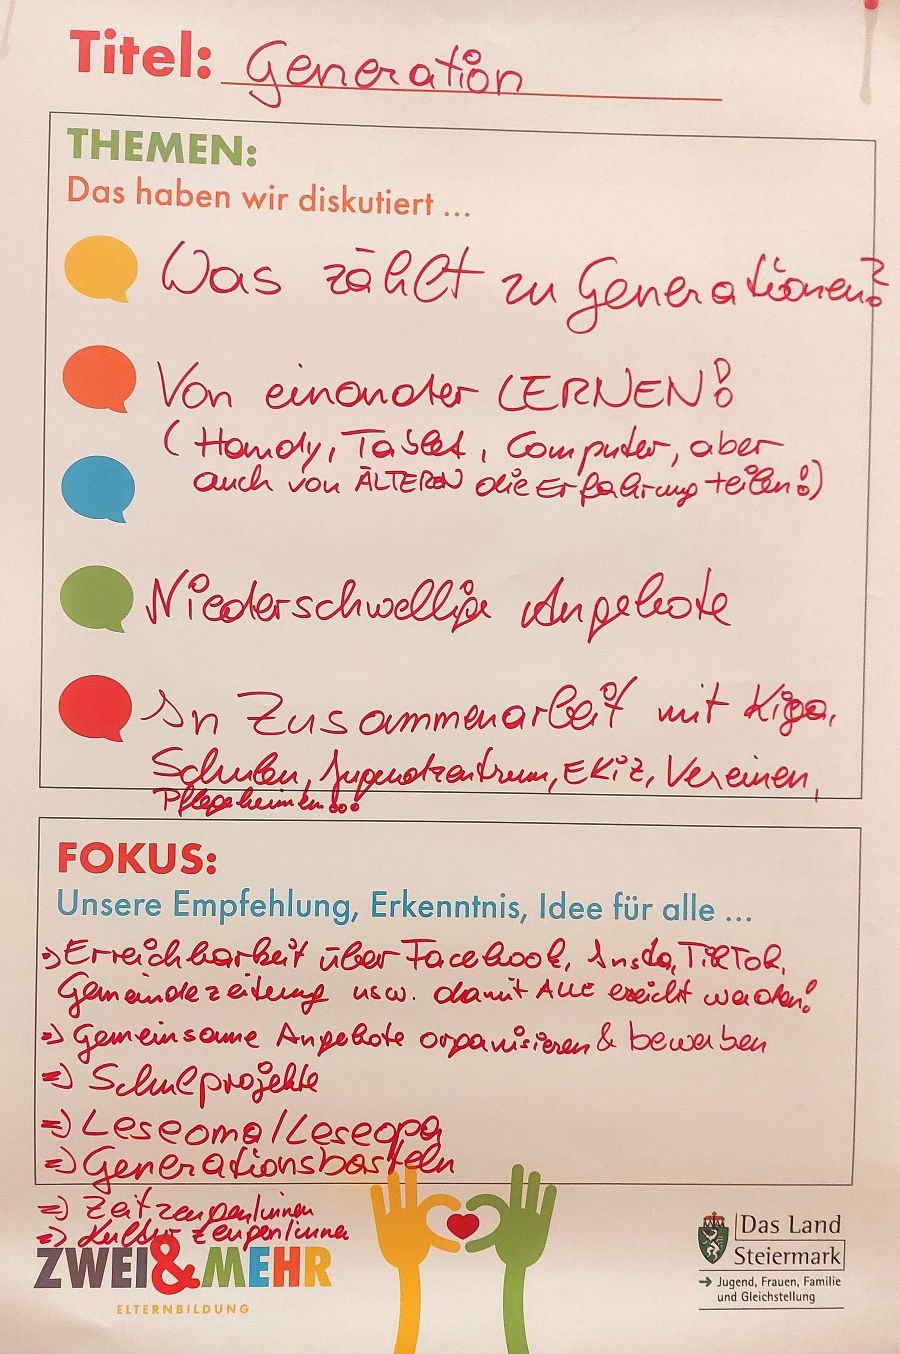 Titel: Generation
THEMEN:
Das haben wir diskutiert ...
Was zählt zu Generationen?
Von einander LERNEN!
(Handy, Tablet, Computer, aber
auch von ÄLTEREN die Erfahrung teilen!)
Niederschwellige Angebote
In Zusammenarbeit mit Kiga,
Schulen, Jugendzentrum, EKiZ, Vereinen,
Pflegeheimen...
FOKUS:
Unsere Empfehlung, Erkenntnis, Idee für alle ...
=> Erreichbarkeit über Facebook, Insta, TikTok,
Gemeindezeitung usw. damit ALLE erreicht werden!
=> Gemeinsame Angebote organisieren & bewerben
=> Schulprojekte
=> Leseoma/Leseopa
=> Generationsbasteln
=> Zeitzeugen/innen
=> Kultur Zeugen/innen
ZWEI&MEHR
ELTERNBILDUNG
Das Land
Steiermark
→ Jugend, Frauen, Familie
und Gleichstellung